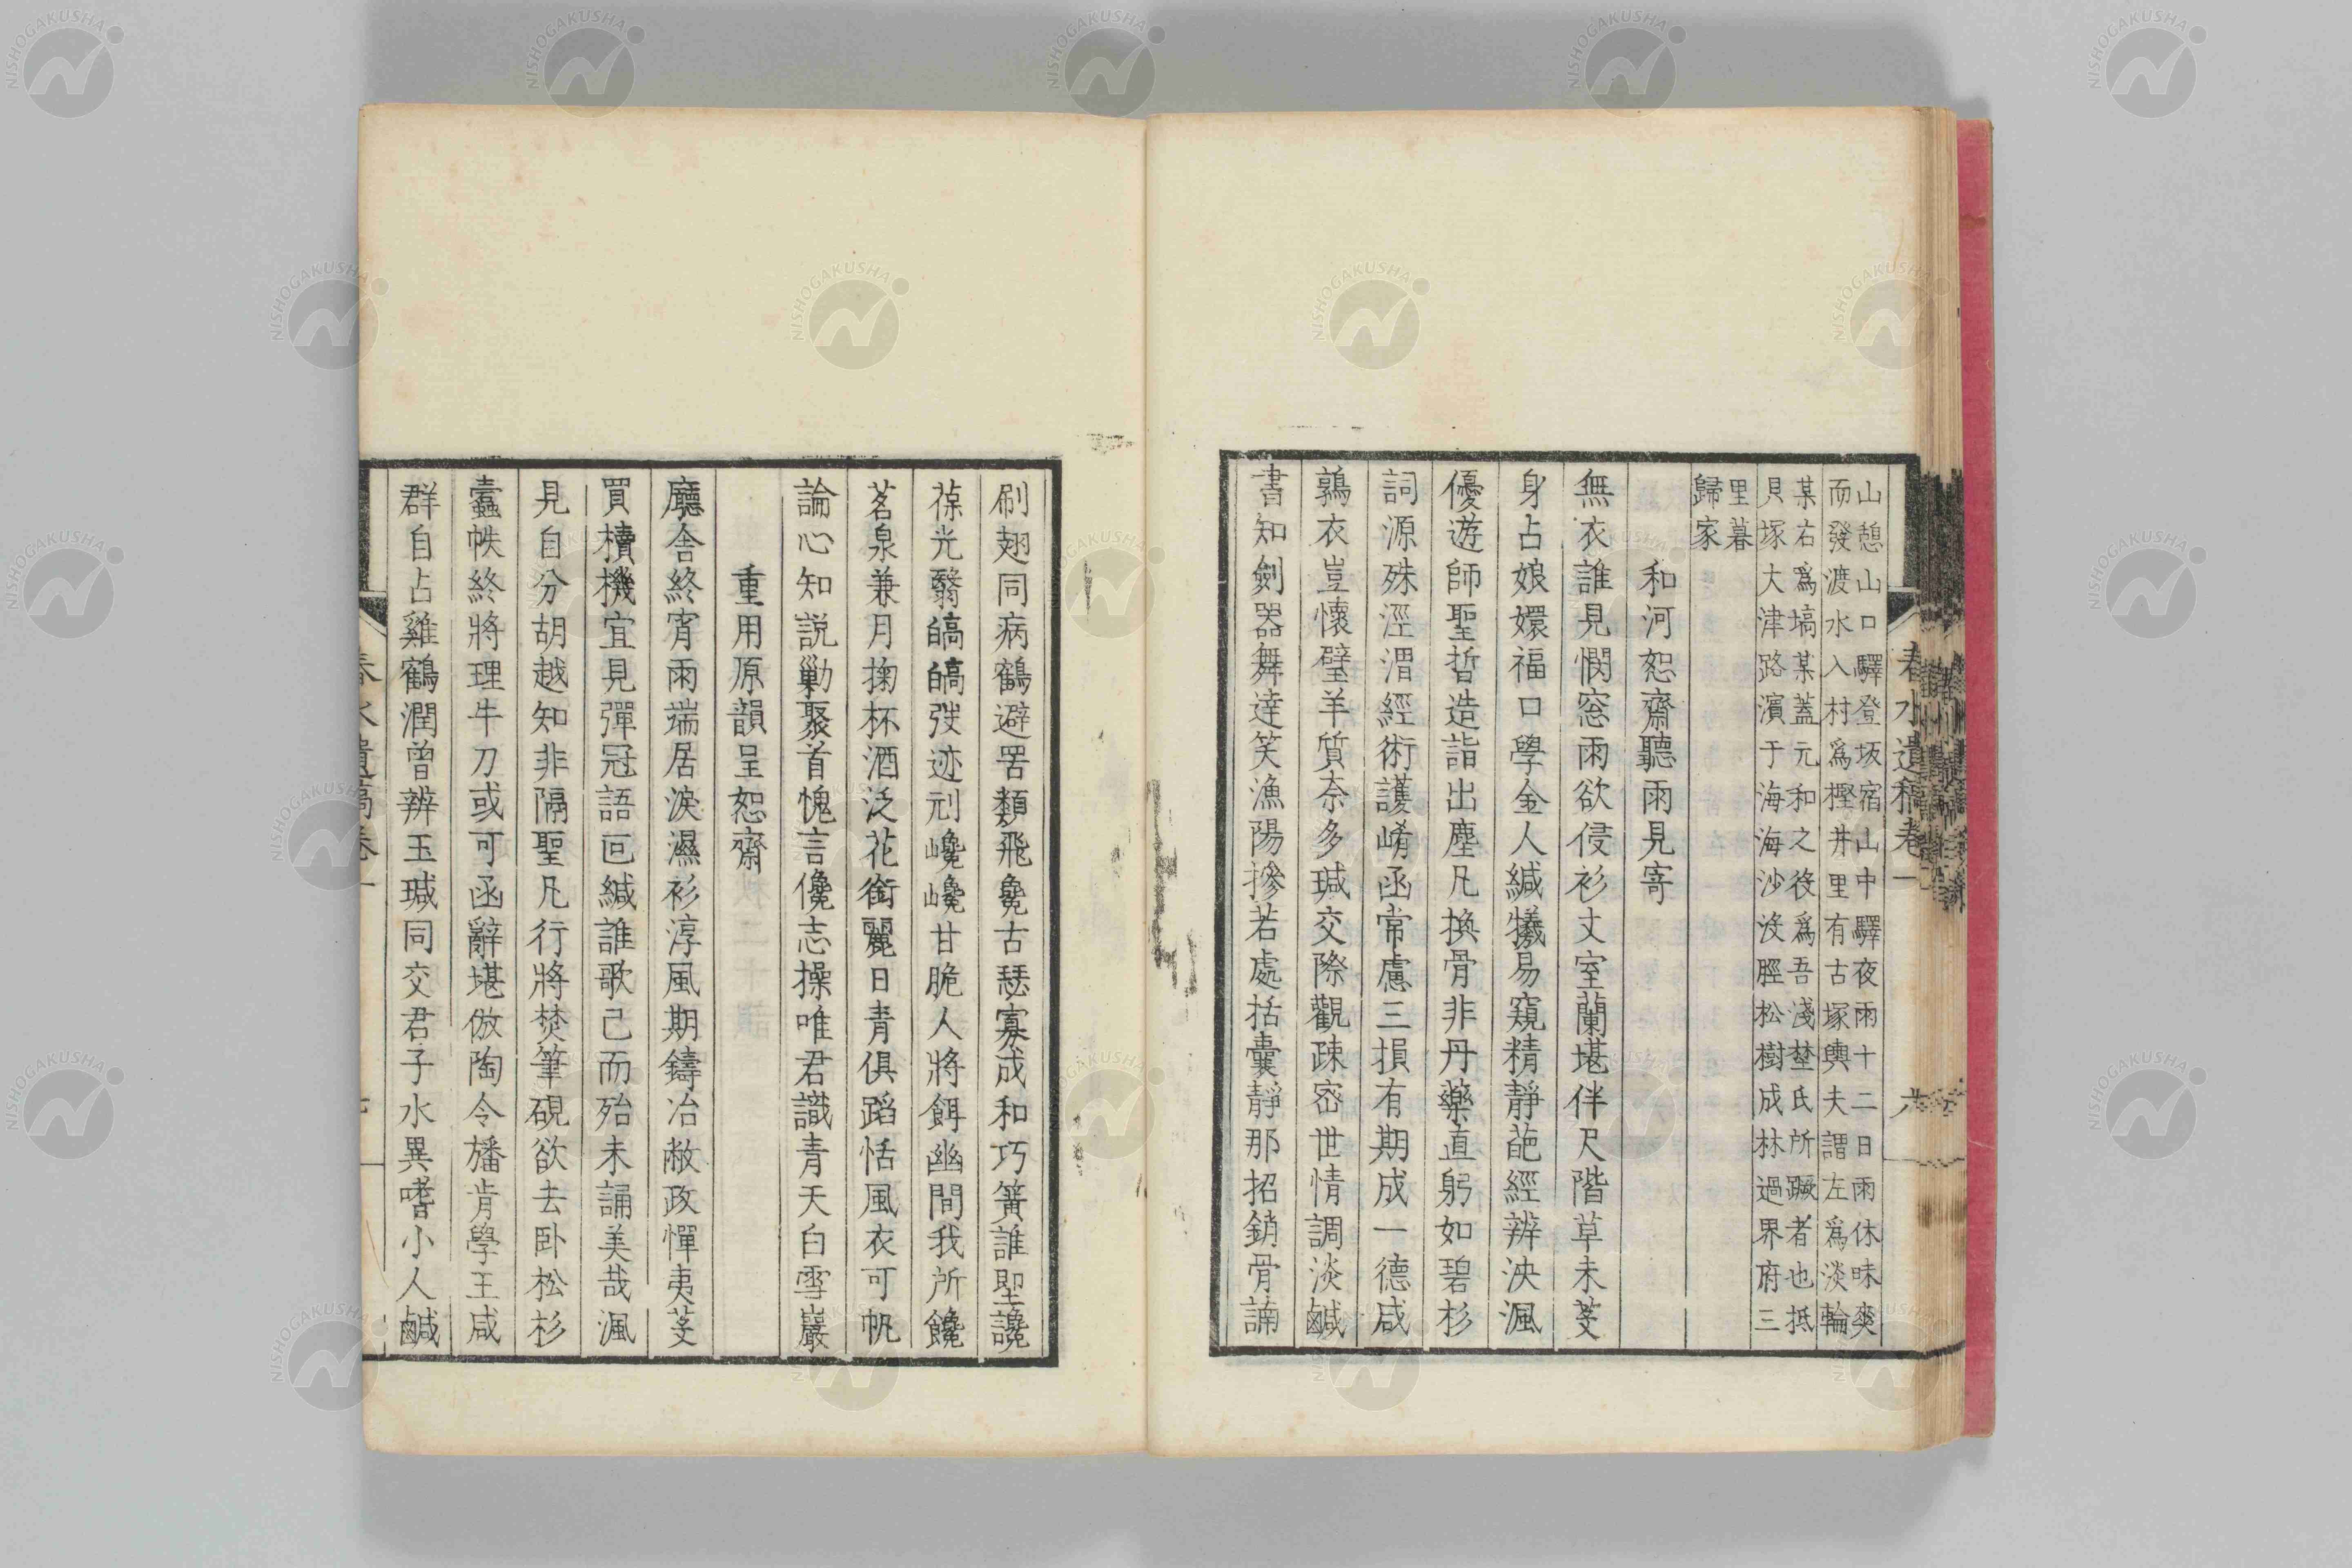 山憩山口驛登坂宿山中驛夜雨十二日雨休昧爽
而發渡水入村爲樫井里有古塚輿夫謂左爲淡輪
某右爲塙某蓋元和之役爲吾淺埜氏所蹶者也抵
貝塚大津路濱于海海沙沒脛松樹成林過界府三
里暮
歸家
和河恕齋聽雨見寄
無衣誰見憫窓雨欲侵衫丈室蘭堪伴尺階草未芟
身占娘嬛福口學金人緘犧易窺精靜葩經辨泱渢
優遊師聖哲造詣出塵凡換骨非丹藥直躬如碧杉
詞源殊涇渭經術護崤函常慮三損有期成一德咸
鶉衣豈懷璧羊質奈多瑊交際觀疎宻世情調淡鹹
書知劍器舞達笑漁陽摻若處括囊靜那招銷骨諵
春水遺稿卷一
六
刷翅同病鶴避罟類飛毚古瑟寡成和巧簧誰聖讒
葆光翳皜皜弢迹刓巉巉甘脆人將餌幽間我所饞
茗泉兼月掬杯酒泛花銜麗日青俱蹈恬風衣可帆
論心知説勦聚首愧言儳志操唯君識青天白雪巖
重用原韻呈恕齋
廳舍終宵雨端居淚濕衫淳風期鑄冶敝政憚夷芟
買櫝機宜見彈冠語叵緘誰歌已而殆未誦美哉渢
見自分胡越知非隔聖凡行將焚筆硯欲去卧松杉
蠹帙終將理牛刀或可函辭堪倣陶令旛肯學王咸
群自占雞鶴潤曾辨玉瑊同交君子水異嗜小人鹹
春水遺稿卷一